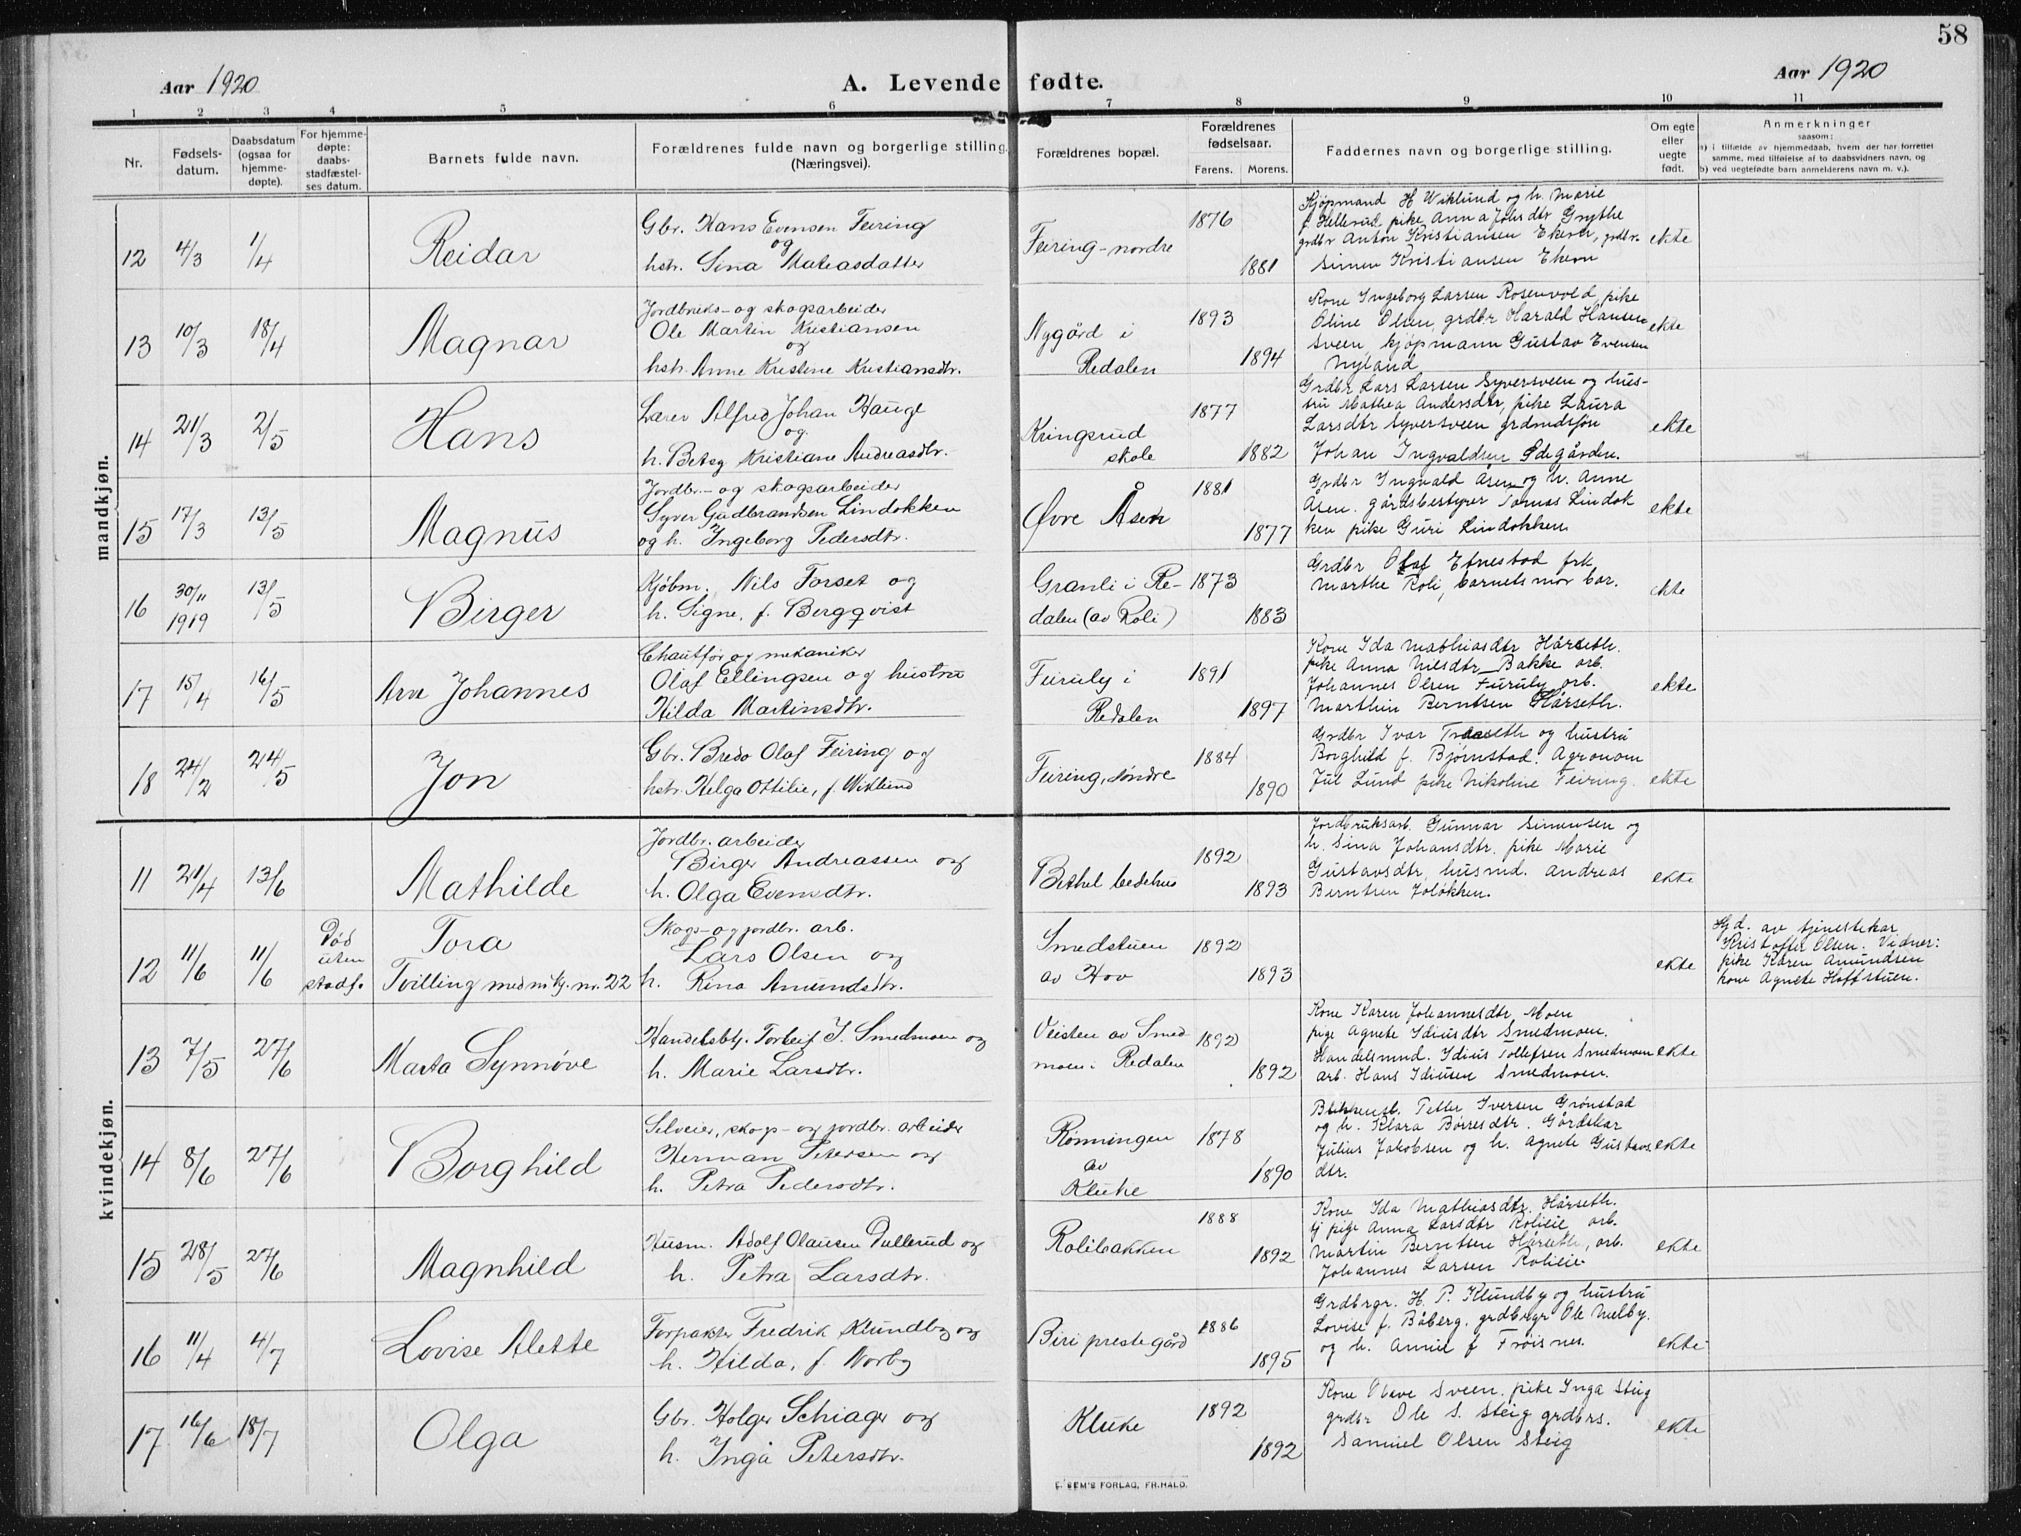 58
Aar 1920
A. Levende fødte.
Aar 1920
1 2 3 4 5 6 7 8 9 10 11
Nr.
Fødsels-
datum.
Daabsdatum
(ogsaa for
hjemme-
døpte).
For hjemme-
døpte:
daabs-
stadfæstel-
ses datum.
Barnets fulde navn.
Forældrenes fulde navn og borgerlige stilling.
(Næringsvei).
Forældrenes bopæl.
Forældrenes
fødselsaar.
Farens. Morens.
Faddernes navn og borgerlige stilling.
Om egte
eller
uegte
født.
Anmerkninger
saasom:
a) i tilfælde av hjemmedaab, hvem der har forrettet
samme, med tilføielse af to daabsvidners navn, og
b) ved uegtefødte barn anmelderens navn m. v.).
mandkjøn.
12 4/3 1/4 Reidar
Gbr. Hans Evensen Feiring
og
hstr. Sina Mateasdatter
Feiring-nordre
1876
1881
Kjøpmand H Wiklund og h. Marie
f. Hellerud, pike Anna Johsdtr Grythe
grdbr Anton Kristiansen Ekern, grdbr.
Simen Kristiansen Ekern
ekte
13 10/3 18/4 Magnar
Jordbruks- og skogsarbeider
Ole Martin Kristiansen
og
hstr. Anne Kristine Kristiansdtr.
Nygård i
Redalen
1893
1894
Kone Ingeborg Larsen Rosenvold, pike
Oline Olsen, grdbr Harald Hansen
Sveen kjøpmann Gustav Evensen
Nyland
ekte
14 21/3 2/5 Hans
Lærer Alfred Johan Hauge
og
h. Betsy Kristiane Andreasdtr.
Kringsrud
skole
1877
1882
Grdbr Lars Larsen Syversveen og hus-
tru Mathea Andersdtr, pike Laura
Larsdtr Syversveen grdmdsføn
Johan Ingvaldsen Ødegården.
ekte
15 17/3 13/5 Magnus
Jordbr.- og skogsarbeider
Syver Gudbrandsen Lindokken
og h. Ingeborg Pedersdtr.
Øvre Åsen
1881
1877
Grdbr Ingvald Åsen og h. Anne
Åsen. gårdsbestyrer Tomas Lindok
ken pike Guri Lindokken
ekte
16 30/11 1919 13/5 Birger
Kjøbm. Nils Torset og
h. Signe, f. Bergqvist
Granli i Re-
dalen (av Roli)
1873
1883
Grdbr Olaf Etnestad frk
Marthe Roli, barnets mor bar.
ekte
17 15/4 16/5 Arve Johannes
Chauffør og mekaniker
Olaf Ellingsen og hustru
Hilda Martinsdtr.
Furuly i
Redalen
1891
1897
Kone Ida Mathiasdtr Hårseth.
pike Anna Nilsdtr Bakke arb.
Johannes Olsen Furuly arb.
Marthin Berntsen Hårseth.
ekte
18 24/2 24/5 Jon
Gbr. Bredo Olaf Feiring og
hstr. Helga Ottilie, f. Wiklund
Feiring, søndre
1884
1890
Grdbr Ivar Traaseth og hustru
Borghild f. Bjørnstad. Agronom
Jul Lund pike Nikoline Feiring.
ekte
kvindekjøn.
11 21/4 13/6 Mathilde
Jordbr. arbeider
Birger Andreassen og
h. Olga Evensdtr.
Bethel bedehus
1892
1893
Jordbruksarb. Gunnar Simensen og
h. Sina Johansdtr. pike Marie
Gustavsdtr, husmd. Andreas
Berntsen Joløkken.
ekte
12 11/6 11/6
Død
uten
stadf.
Tora
Tvilling med mkj. nr. 22
Skogs- og jordbr. arb.
Lars Olsen og
h. Rina Amundsdtr.
Smedstuen
av Hov
1892
1893
ekte
Hjd. av tjenestekar
Kristoffer Olsen. Vidner:
pike Karen Amundsen
kone Agnete Hoffstuen.
13 7/5 27/6 Marta Synnøve
Handelsbtj. Torleif I. Smedmoen og
h. Marie Larsdtr.
Veisten av Smed
moen i Redalen
1892
1892
Kone Karen Johannesdtr Moen
pige Agnete Idiusdtr Smedmoen.
Handelsmnd. Idius Tollefsen Smedmoen
arb. Hans Idiusen Smedmoen.
ekte
14 8/6 27/6 Borghild
Selveier, skogs- og jordbr. arbeider
Herman Petersen og
h. Petra Pedersdtr.
Rønningen
av
Kluke
1878
1890
Petter Iversen Grønstad
og h. Klara Børresdtr. Gårdskar
Julius Jakobsen og h. Agnete Gustavs.
dtr.
ekte
15 28/5 27/6 Magnhild
Husm. Adolf Olausen Dullerud og
h. Petra Larsdtr.
Rolibakken
1888
1892
Kone Ida Mathiasdtr. Hårseth.
tj pige Anna Larsdtr Rolieie arb.
Martin Berntsen Hårseth, arb.
Johannes Larsen Rolieie
ekte
16 11/4 4/7 Lovise Alette
Forpakter Fredrik Klundby og
h. Hilda, f. Norby
Biri prestegård
1886
1895
Grdbrgr. H. P. Klundby og hustru
Lovise f. Båberg. grdbrgr Ole Melby.
og h. Annie f Frøisnes.
ekte
17 16/6 18/7 Olga
Gbr. Holger Schiager og
h. Inga Petersdtr.
Kluke
1892
1892
Kone Olave Sveen. pike Inga Steig
grdbr Ole S. Steig grdbrs.
Samuel Olsen Steig
ekte
E. SEM'S FORLAG, FR.HALD.